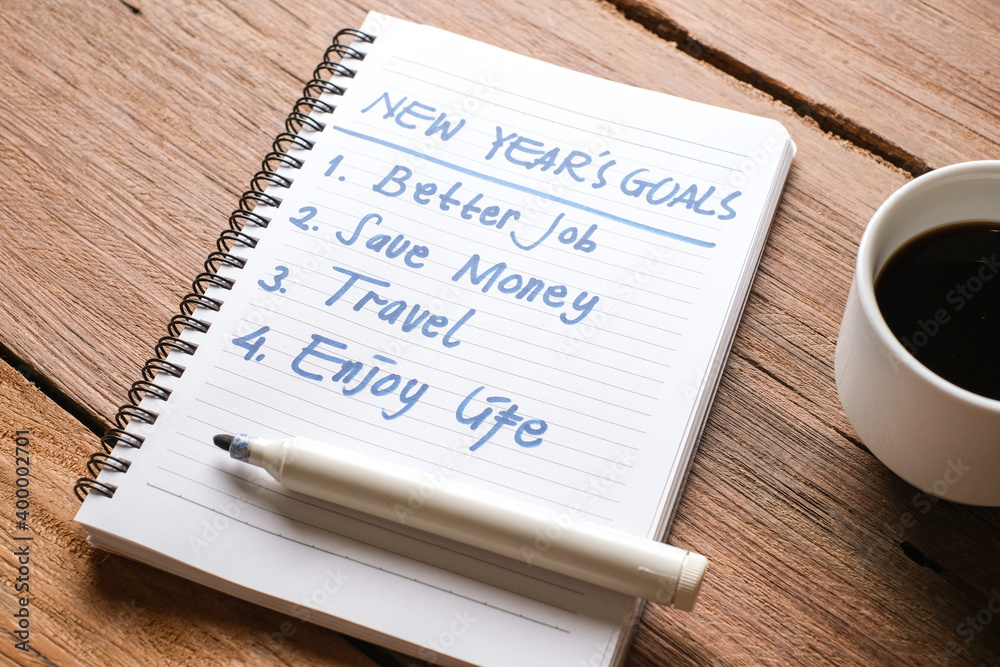 NEW YEAR'S GOALS
1. Better Job
2. Save Money
3. Travel
4. Enjoy Life
Adobe Stock | #400002701